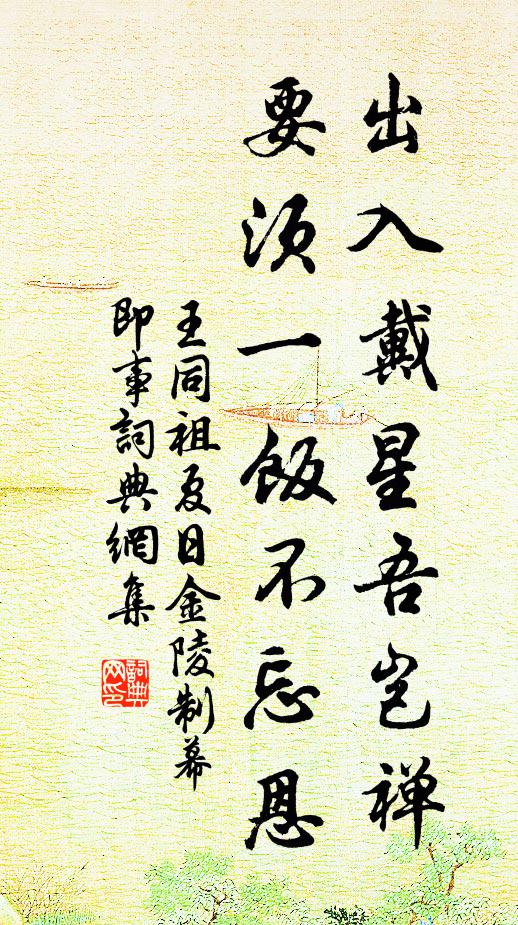 出入戴星吾岂禅
要须一饭不忘恩
王同祖夏日金陵制幕
即事詞典網集
詞典网印